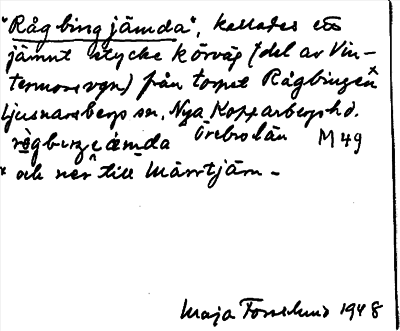 "Rågbingjämda", kallades ett
jämnt stycke körväg (del av Vin-
termorsvgn) från torpet Rågbingen x
Ljusnarsbergs sn. Nya Kopparbergs hd.
Örebro län M49
x och ner till Märrtjärn -
Maja Forsslund 1948